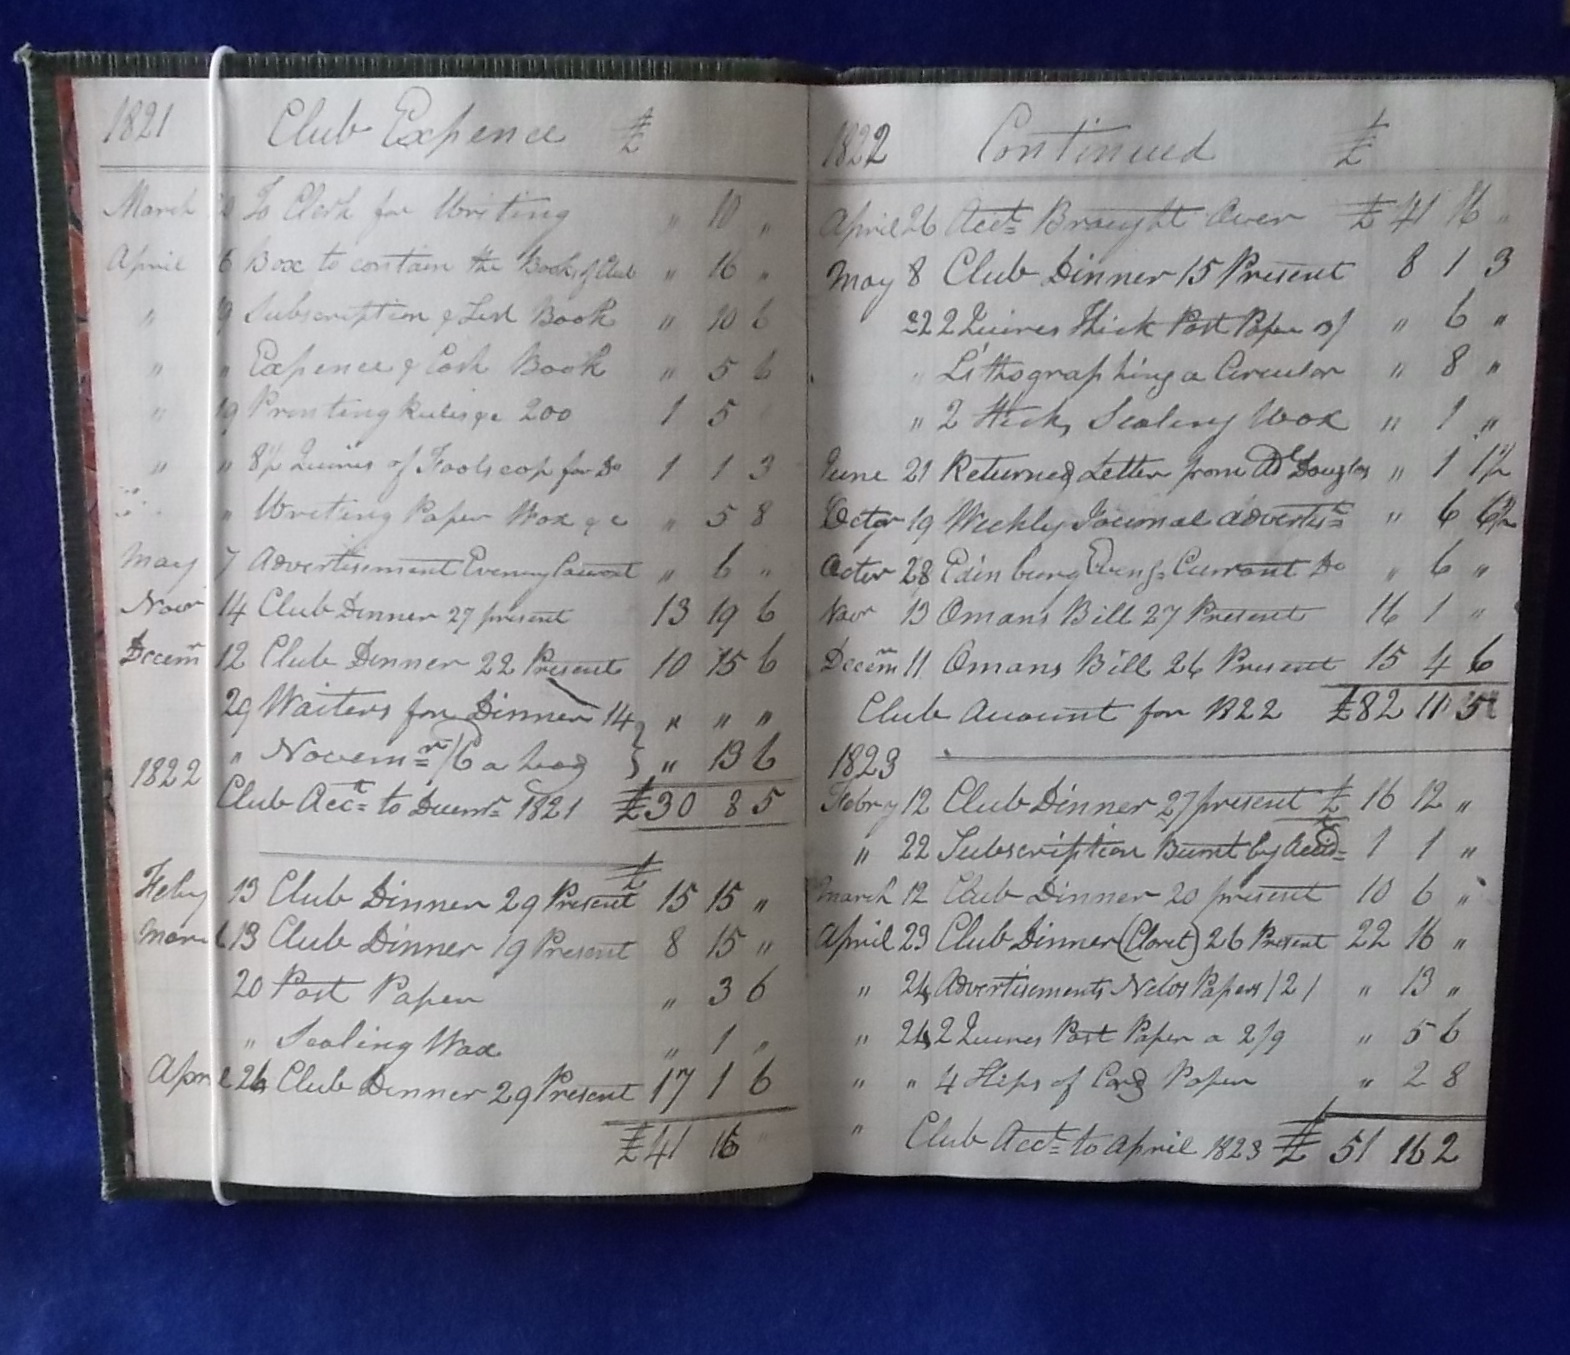 1821 Club Expence £
March To Clerk for Writing " 10 "
April 6 Box to contain the Books of Club " 16 "
" 9 Subscription & List Book " 10 6
" " Expence & Cash Book " 5 6
" 19 Printing Rules &c 200 1 5
" " 8½ Quires of Foolscap for Do 1 1 3
" Writing Paper Wax &c " 5 8
May 7 Advertisement Evening Courant " 6 "
Novr 14 Club Dinner 27 present 13 19 6
Decemr 12 Club Dinner 22 Present 10 15 6
29 Waiters for Dinner 14 " " "
" Novemr /6 a head } " 13 6
1822
Club Acct to Decemr 1821 £30 8 5
£
Feby 13 Club Dinner 29 Present 15 15 "
March 13 Club Dinner 19 Present 8 15 "
20 Post Paper " 3 6
" Sealing Wax " 1 "
April 24 Club Dinner 29 Present 17 1 6
£41 16 "
1822 Continued £
April 26 Acct Brought Over £ 41 16 "
May 8 Club Dinner 15 Present 8 1 3
22 2 Quires Thick Post Paper " 6 "
" Lithographing a Circular " 8 "
" 2 Sticks Sealing Wax " 1 "
June 21 Returned Letter from Dr Douglas " 1 1½
Octor 19 Weekly Journal advertist " 6 6½
Octor 28 Edinburg Eveng Currant Do " 6 "
Novr 13 Omans Bill 27 Present 16 1 "
Decemr 11 Omans Bill 26 Present 15 4 6
Club Account for 1822 £82 11 5
1823
Febry 12 Club Dinner 27 present £ 16 12 "
" 22 Subscription Burnt by Accidt 1 1 "
March 12 Club Dinner 20 present 10 6 "
April 23 Club Dinner (Claret) 26 Present 22 16 "
" 24 Advertisements News Papers /2/ " 13 "
" 24 2 Quires Post Paper a 2/9 " 5 6
" " 4 Slips of Card Paper " 2 8
" Club Acct to April 1823 £ 51 16 2